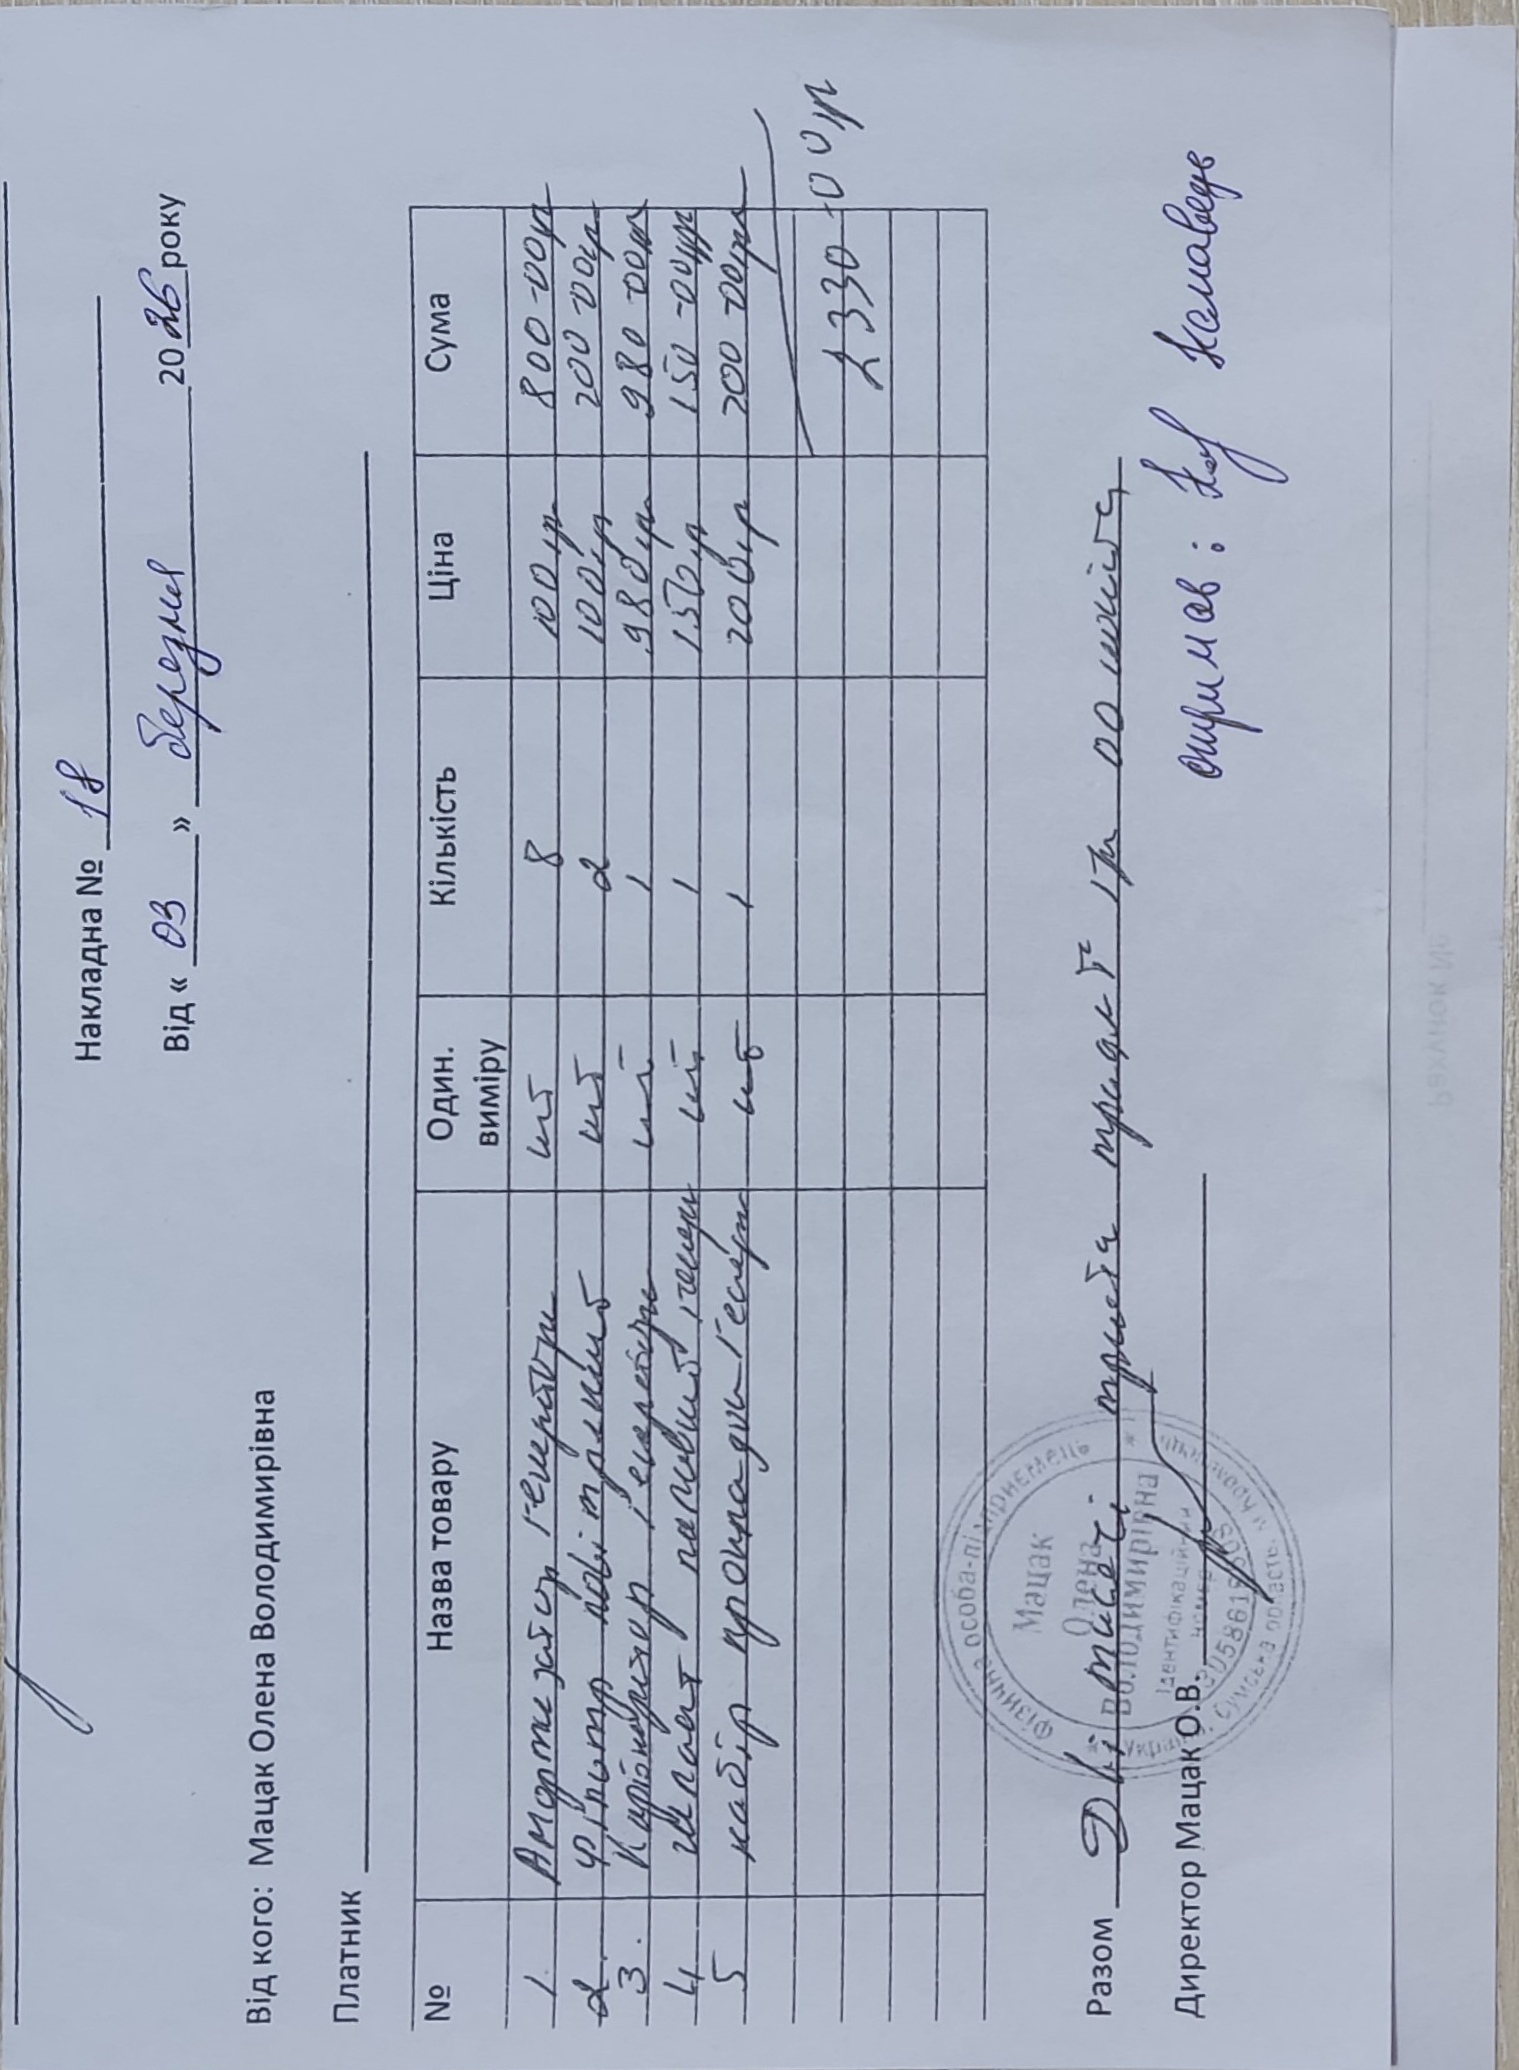 Накладна № 18
Від « 03 » березня 2026 року
Від кого: Мацак Олена Володимирівна
Платник
№ Назва товару Один. виміру Кількість Ціна Сума
1. Амортизатор генератора шт 8 100 гр 800-00гр
2. Фільтр повітряний шт 2 100гр 200-00гр
3. Карбюратор генератора шт 1 980гр 980-00гр
4 Шланг паливний генер шт 1 150гр 150-00гр
5 набір прокладки генер шт 1 200гр 200-00грн
2330-00гр
Разом Дві тисячі триста тридцять грн 00 копійок
Директор Мацак О.В.
отримав:
Фізична особа-підприємець
Мацак
Олена
Володимирівна
Ідентифікаційний
номер
Україна, Сумська область, м.
Рахунок №